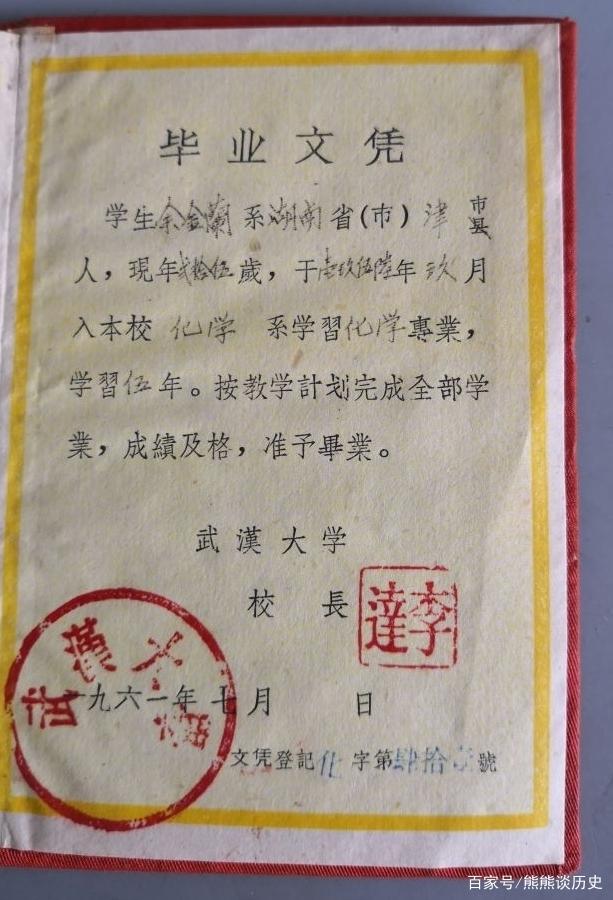 毕业文凭
学生余金蘭系湖南省(市)津市县
人，現年贰拾伍歲，于壹玖伍陸年玖月
入本校化学系学習化学專業，
学習伍年。按教学計划完成全部学
業，成績及格，准予畢業。
武漢大学
校長
李達
武漢大學
一九六一年七月 日
文凭登記化字第肆拾号號
百家号/熊熊谈历史